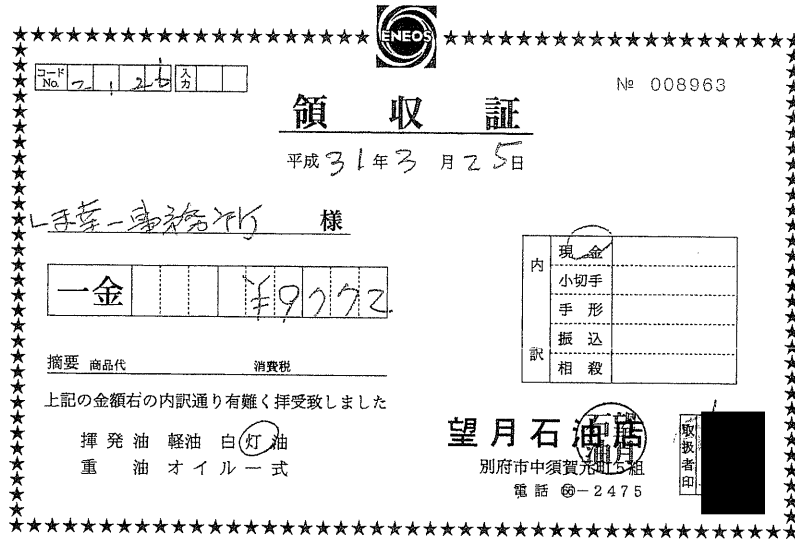 ENEOS
コードNo. 2 1 26 入力
№ 008963
領収証
平成31年3月25日
しま葉一事務所 様
一金 ¥9772
内訳
現金
小切手
手形
振込
相殺
摘要 商品代 消費税
上記の金額右の内訳通り有難く拝受致しました
揮発油 軽油 白灯油
重油 オイル一式
望月石油店
別府市中須賀元町5組
電話 66-2475
取扱者印